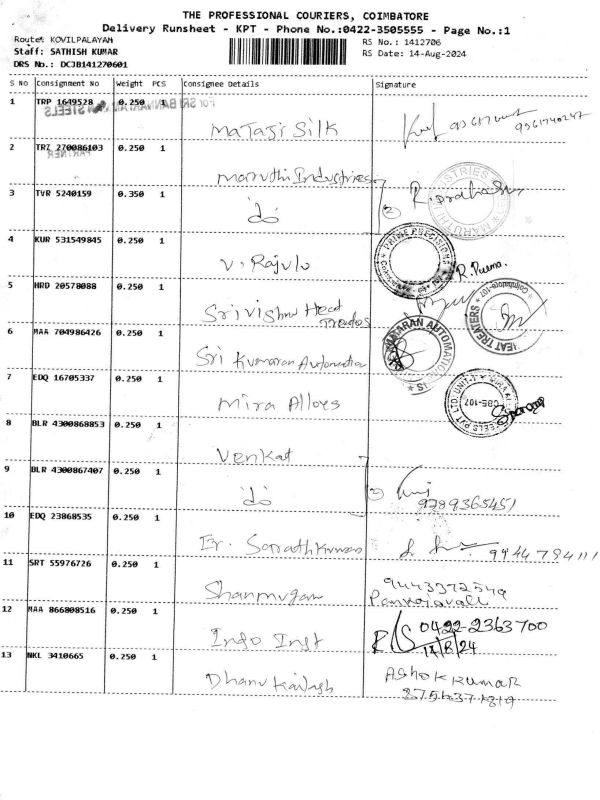 THE PROFESSIONAL COURIERS, COIMBATORE
Delivery Runsheet - KPT - Phone No.:0422-3505555 - Page No.:1
Route: KOVILPALAYAM
Staff: SATHISH KUMAR
DRS No.: DCJB141270601
RS No.: 1412706
RS Date: 14-Aug-2024
S No Consignment No Weight PCS Consignee Details Signature
1 TRP 1649528 0.250 1 Mataji Silk
2 TRZ 270086103 0.250 1 Maruthi Industries
PARTNER
3 TVR 5240159 0.350 1 do
4 KUR 531549845 0.250 1 V. Rajulu R. Purna.
5 HRD 20578088 0.250 1 Srivishnu Heat
6 MAA 704986426 0.250 1 Sri Kumaran Automation
7 EDQ 16705337 0.250 1 Mira Alloys
8 BLR 4300868853 0.250 1 Venkat
9 BLR 4300867407 0.250 1 do 9789365451
10 EDQ 23868535 0.250 1 Er. Sarath Kumar
11 SRT 55976726 0.250 1 Shanmugam
12 MAA 866808516 0.250 1 Info Inst 0422-2363700
13 NKL 3410665 0.250 1 Dhanu Kailash Ashok kumar